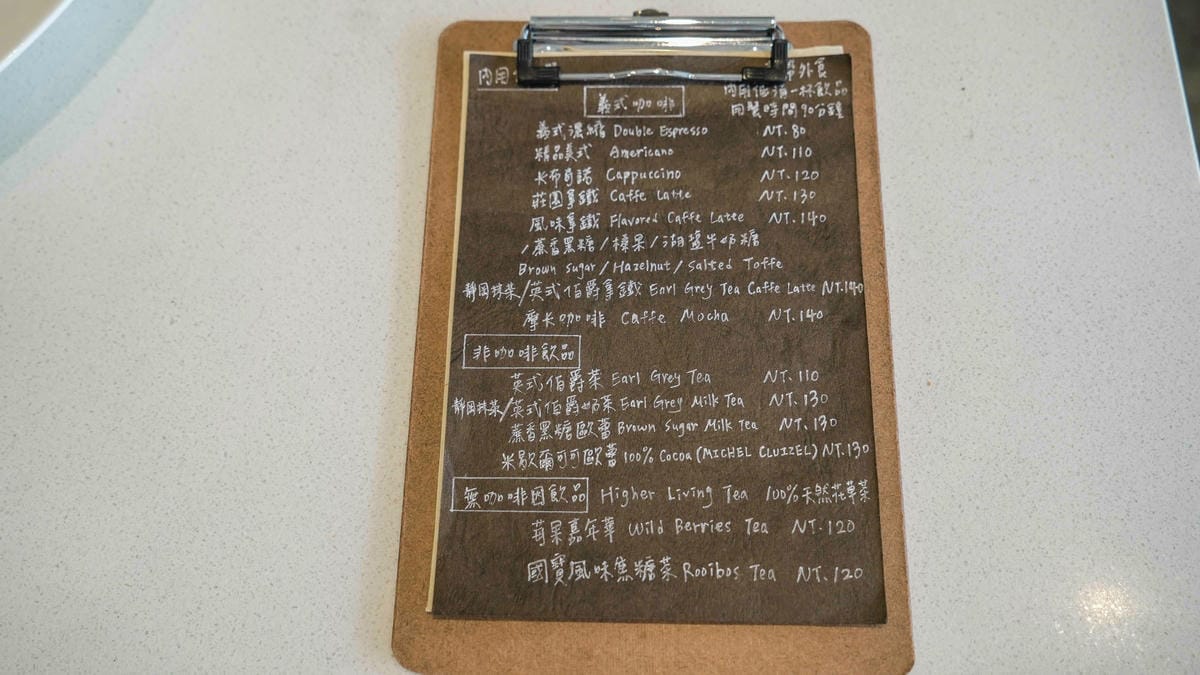 內用
外食
內用低消一杯飲品
用餐時間90分鐘
義式咖啡
義式濃縮 Double Espresso NT.80
精品美式 Americano NT.110
卡布奇諾 Cappuccino NT.120
莊園拿鐵 Caffe Latte NT.130
風味拿鐵 Flavored Caffe Latte NT.140
/蔗香黑糖/榛果/湖鹽牛奶糖
Brown Sugar/Hazelnut/Salted Toffe
靜岡抹茶/英式伯爵拿鐵 Earl Grey Tea Caffe Latte NT.140
摩卡咖啡 Caffe Mocha NT.140
非咖啡飲品
英式伯爵茶 Earl Grey Tea NT.110
靜岡抹茶/英式伯爵奶茶 Earl Grey Milk Tea NT.130
蔗香黑糖歐蕾 Brown Sugar Milk Tea NT.130
米歇爾可可歐蕾 100% Cocoa (MICHEL CLUIZEL) NT.130
無咖啡因飲品 Higher Living Tea 100%天然花草茶
莓果嘉年華 Wild Berries Tea NT.120
國寶風味焦糖茶 Rooibos Tea NT.120